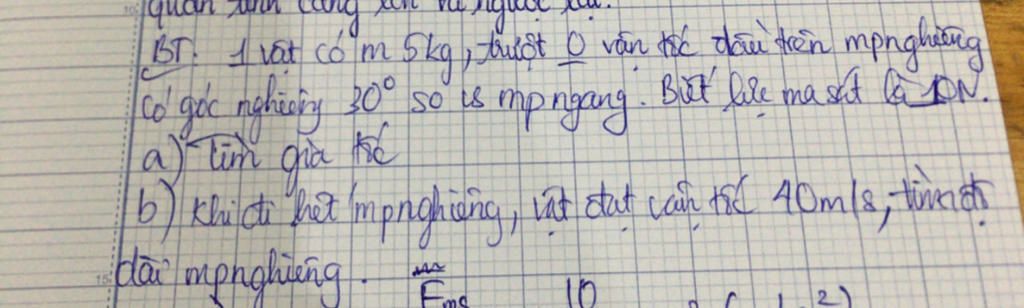 quán tính càng lớn và ngược lại.
BT: 1 vật có m 5kg, trượt 0 vận tốc đầu trên mpnghiêng
có góc nghiêng 30° so vs mpngang. Biết lực ma sát là 10N.
a) Tìm gia tốc
b) Khi đi hết mpnghiêng, vật đạt vận tốc 40m/s, tìm độ
dài mpnghiêng.
Fms 10